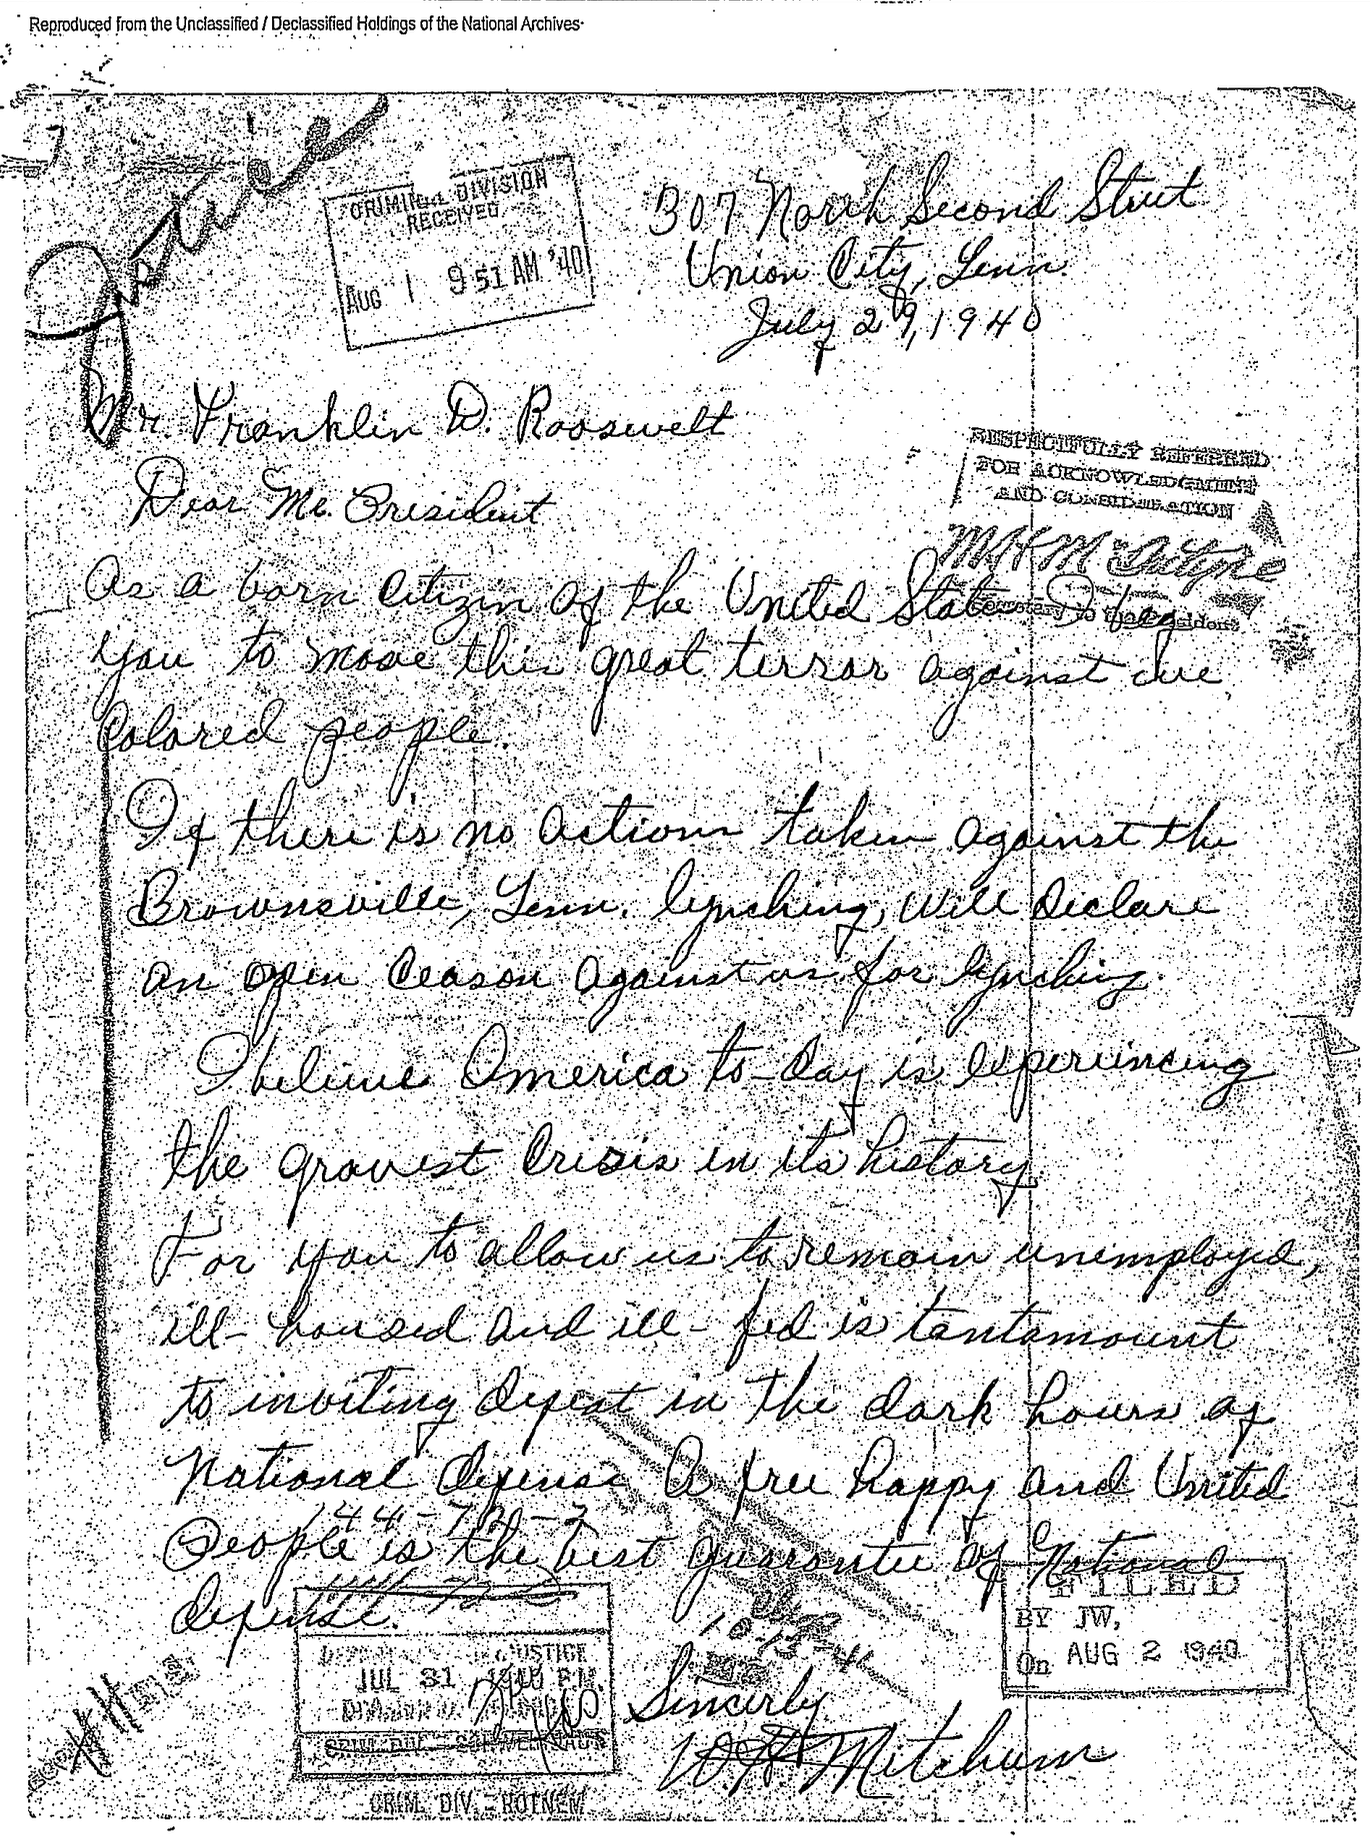 Reproduced from the Unclassified / Declassified Holdings of the National Archives
Justice
CRIMINAL DIVISION
RECEIVED
AUG 1 9 51 AM '40
307 North Second Street
Union City, Tenn.
July 29, 1940
Mr. Franklin D. Roosevelt
Dear Mr. President
RESPECTFULLY REFERRED
FOR ACKNOWLEDGMENT
AND CONSIDERATION
M H McIntyre
Secretary to the President
As a born Citizen of the United States I beg
you to move this great terror against our
Colored people.
If there is no actions taken against the
Brownsville, Tenn. lynching, will declare
an open season against us for lynching.
I believe America to-day is experiencing
the gravest crisis in its history
For you to allow us to remain unemployed,
ill-housed and ill-fed is tantamount
to inviting defeat in the dark hours of
National defense A free happy and United
People is the best guarantee of National
defense.
144-72-2
FILED
BY JW,
On AUG 2 1940
JUSTICE
JUL 31 1940 P.M.
10-13-41
Sincerly
W. H. Mitchum
CRIM. DIV. - ROTNEM